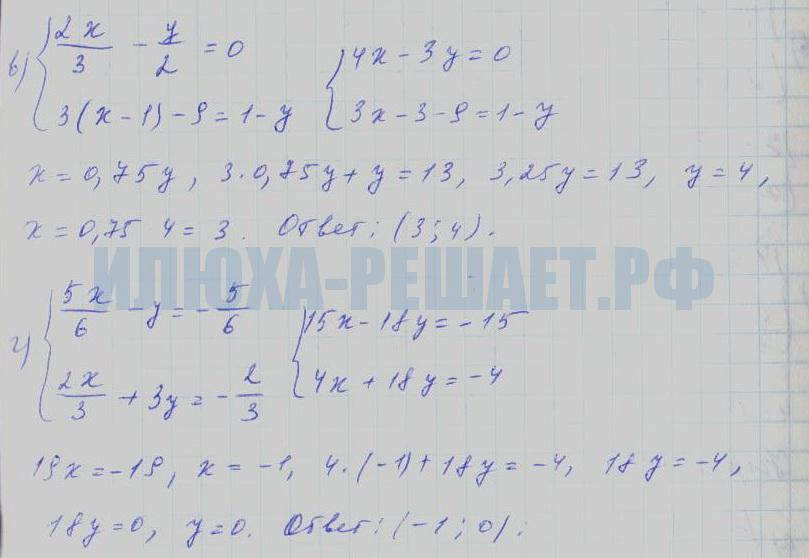 в) { 2x/3 - y/2 = 0 { 4x - 3y = 0
3(x-1) - 9 = 1 - y 3x - 3 - 9 = 1 - y
x = 0,75y, 3·0,75y + y = 13, 3,25y = 13, y = 4,
x = 0,75 4 = 3. Ответ: (3; 4).
ИЛЮХА-РЕШАЕТ.РФ
г) { 5x/6 - y = -5/6 { 15x - 18y = -15
2x/3 + 3y = -2/3 4x + 18y = -4
19x = -19, x = -1, 4·(-1) + 18y = -4, 18y = -4,
18y = 0, y = 0. Ответ: (-1; 0).